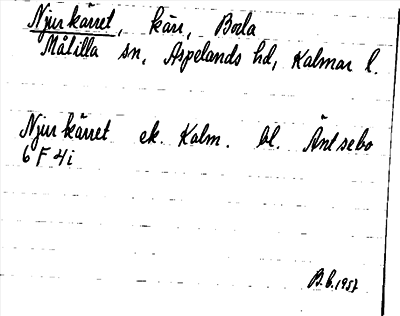 Njurkärret, kärr, Boda
Målilla sn, Aspelands hd, Kalmar l.
Njurkärret ek. Kalm. bl. Äntsebo
6 F 4 i
B.b. 1957